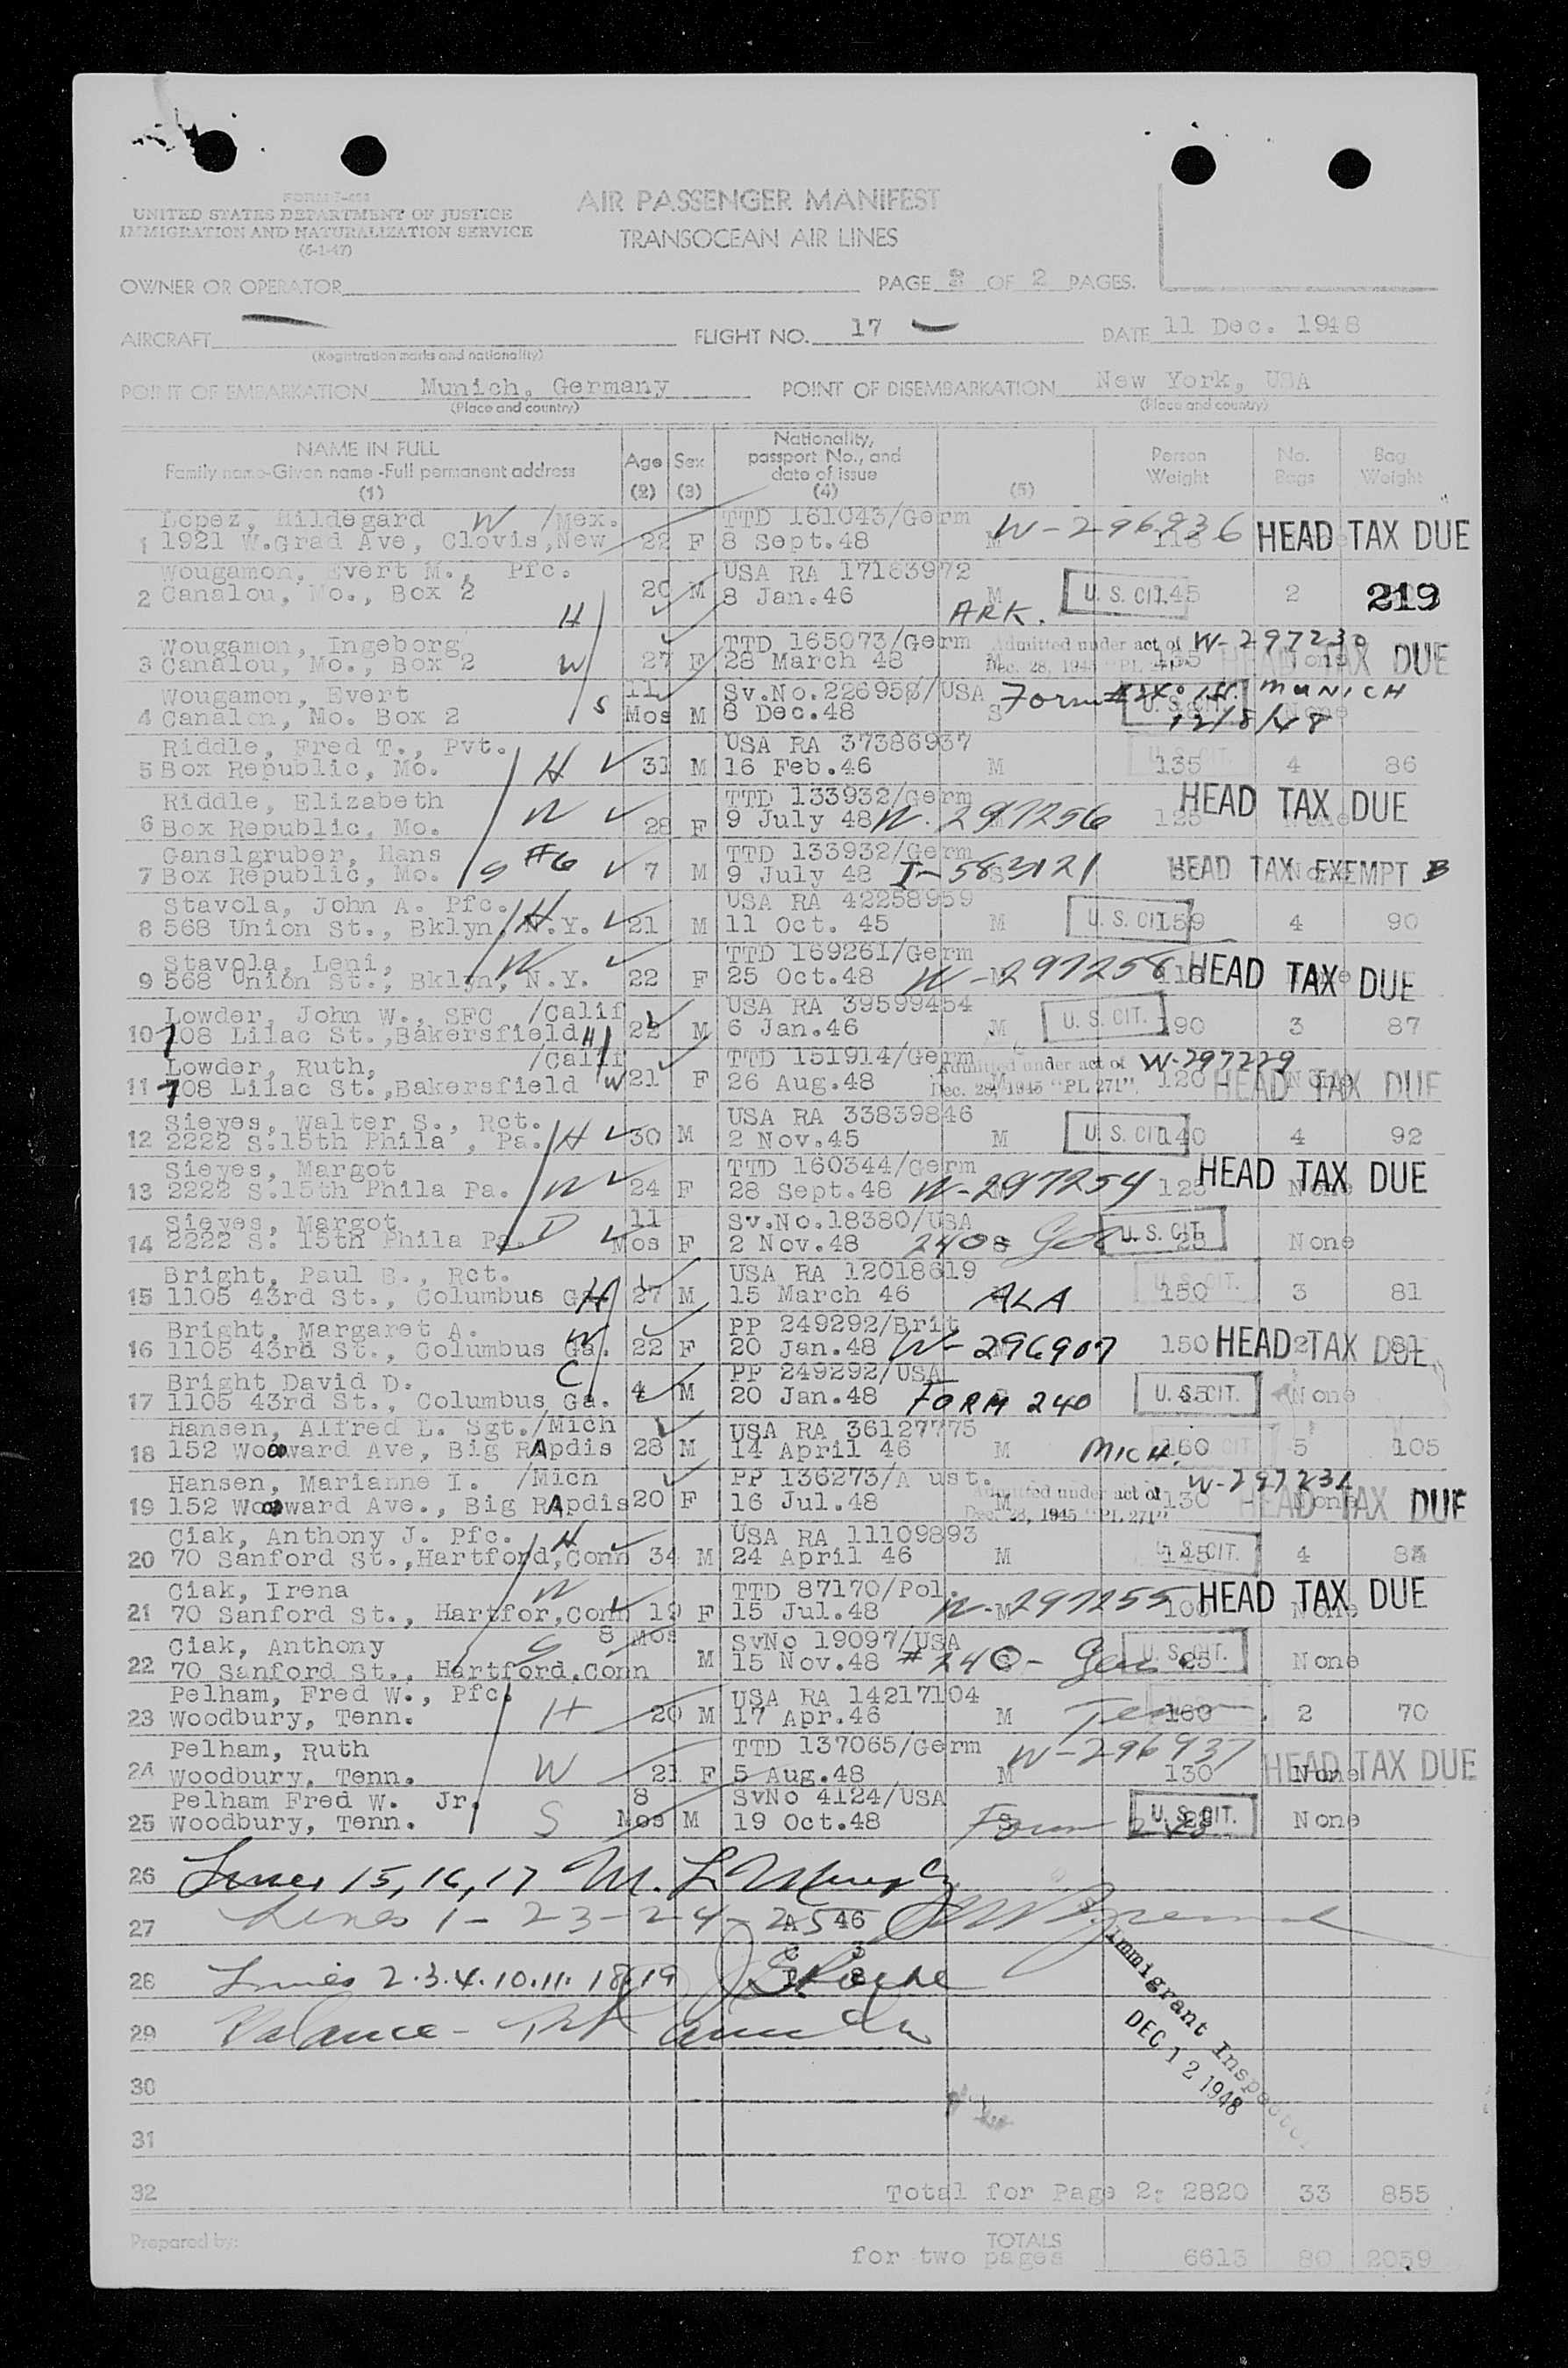 FORM I-466
UNITED STATES DEPARTMENT OF JUSTICE
IMMIGRATION AND NATURALIZATION SERVICE
(6-1-47)
AIR PASSENGER MANIFEST
TRANSOCEAN AIR LINES
OWNER OR OPERATOR
PAGE 2 OF 2 PAGES.
AIRCRAFT
(Registration marks and nationality)
FLIGHT NO. 17
DATE 11 Dec. 1948
POINT OF EMBARKATION Munich, Germany
(Place and country)
POINT OF DISEMBARKATION New York, USA
(Place and country)
NAME IN FULL
Family name-Given name-Full permanent address
(1)
Age
(2)
Sex
(3)
Nationality,
passport No., and
date of issue
(4)
(5)
Person
Weight
No.
Bags
Bag
Weight
Lopez, Hildegard W /Mex. TTD 161043/Germ W-296936 HEAD TAX DUE
1 1921 W.Grad Ave, Clovis,New 22 F 8 Sept.48 M
Wougamon, Evert M., Pfc. USA RA 17163972
2 Canalou, Mo., Box 2 H 20 M 8 Jan.46 M ARK. U. S. CIT. 145 2 219
Wougamon, Ingeborg TTD 165073/Germ Admitted under act of W-297230
3 Canalou, Mo., Box 2 W 27 F 28 March 48 Dec. 28, 1945 "PL 271" None HEAD TAX DUE
Wougamon, Evert 11 Sv.No.226958/USA Form 240 MUNICH
4 Canalon, Mo. Box 2 S Mos M 8 Dec.48 S U. S. CIT. None 12/8/48
Riddle, Fred T., Pvt. USA RA 37386937
5 Box Republic, Mo. H 31 M 16 Feb.46 M U. S. CIT. 135 4 86
Riddle, Elizabeth TTD 133932/Germ HEAD TAX DUE
6 Box Republic, Mo. W 28 F 9 July 48 W-297256 125 None
Ganslgruber, Hans TTD 133932/Germ
7 Box Republic, Mo. S #6 7 M 9 July 48 I-583121 HEAD TAX EXEMPT B None
Stavola, John A. Pfc. H USA RA 42258959
8 568 Union St., Bklyn, N.Y. 21 M 11 Oct. 45 M U. S. CIT. 159 4 90
Stavola, Leni, W TTD 169261/Germ
9 568 Union St., Bklyn, N.Y. 22 F 25 Oct.48 W-297258 118 None HEAD TAX DUE
Lowder, John W., SFC /Calif USA RA 39599454
10 708 Lilac St.,Bakersfield H 22 M 6 Jan.46 M U. S. CIT. 190 3 87
Lowder, Ruth, /Calif TTD 151914/Germ Admitted under act of W-297229
11 708 Lilac St.,Bakersfield W 21 F 26 Aug.48 M Dec. 28, 1945 "PL 271" 120 None HEAD TAX DUE
Sieyes, Walter S., Rct. USA RA 33839846
12 2222 S.15th Phila , Pa. H 30 M 2 Nov.45 M U. S. CIT. 140 4 92
Sieyes, Margot TTD 160344/Germ HEAD TAX DUE
13 2222 S.15th Phila Pa. W 24 F 28 Sept.48 W-297254 125 None
Sieyes, Margot D 11 Sv.No.18380/USA
14 2222 S. 15th Phila Pa. Mos F 2 Nov.48 240 S Ger U. S. CIT. 25 None
Bright, Paul B., Rct. USA RA 12018619
15 1105 43rd St., Columbus Ga. H 27 M 15 March 46 ALA U. S. CIT. 150 3 81
Bright, Margaret A. W PP 249292/Brit
16 1105 43rd St., Columbus Ga. 22 F 20 Jan.48 W-296907 150 2 81 HEAD TAX DUE
Bright David D. C PP 249292/USA
17 1105 43rd St., Columbus Ga. 4 M 20 Jan.48 FORM 240 U. S. CIT. 45 None
Hansen, Alfred L. Sgt./Mich USA RA 36127775
18 152 Woodward Ave, Big RApdis 28 M 14 April 46 M MICH. 160 5 105
Hansen, Marianne I. /Mich PP 136273/A ust. W-297231
19 152 Woodward Ave., Big RApdis 20 F 16 Jul.48 M Admitted under act of Dec. 28, 1945 "PL 271" 130 None HEAD TAX DUE
Ciak, Anthony J. Pfc. H USA RA 11109893
20 70 Sanford St.,Hartford,Conn 34 M 24 April 46 M U. S. CIT. 145 4
Ciak, Irena W TTD 87170/Pol. HEAD TAX DUE
21 70 Sanford St., Hartfor,Conn 19 F 15 Jul.48 W-297255 100 None
Ciak, Anthony S 8 Mos SvNo 19097/USA
22 70 Sanford St., Hartford,Conn M 15 Nov.48 #240- Ger U. S. CIT. 25 None
Pelham, Fred W., Pfc. USA RA 14217104
23 Woodbury, Tenn. H 20 M 17 Apr.46 M Tenn. 160 2 70
Pelham, Ruth TTD 137065/Germ W-296937
24 Woodbury, Tenn. W 21 F 5 Aug.48 M 130 None HEAD TAX DUE
Pelham Fred W. Jr. 8 SvNo 4124/USA
25 Woodbury, Tenn. S Mos M 19 Oct.48 S Form 240 U. S. CIT. None
26 Lines 15,16,17 M. L. Murphy
27 Lines 1-23-24-25 A 46
28 Lines 2.3.4.10.11.18.19
29 Balance-
Immigrant Inspector
DEC 12 1948
30
31
32 Total for Page 2: 2820 33 855
Prepared by:
TOTALS
for two pages 6613 80 2059